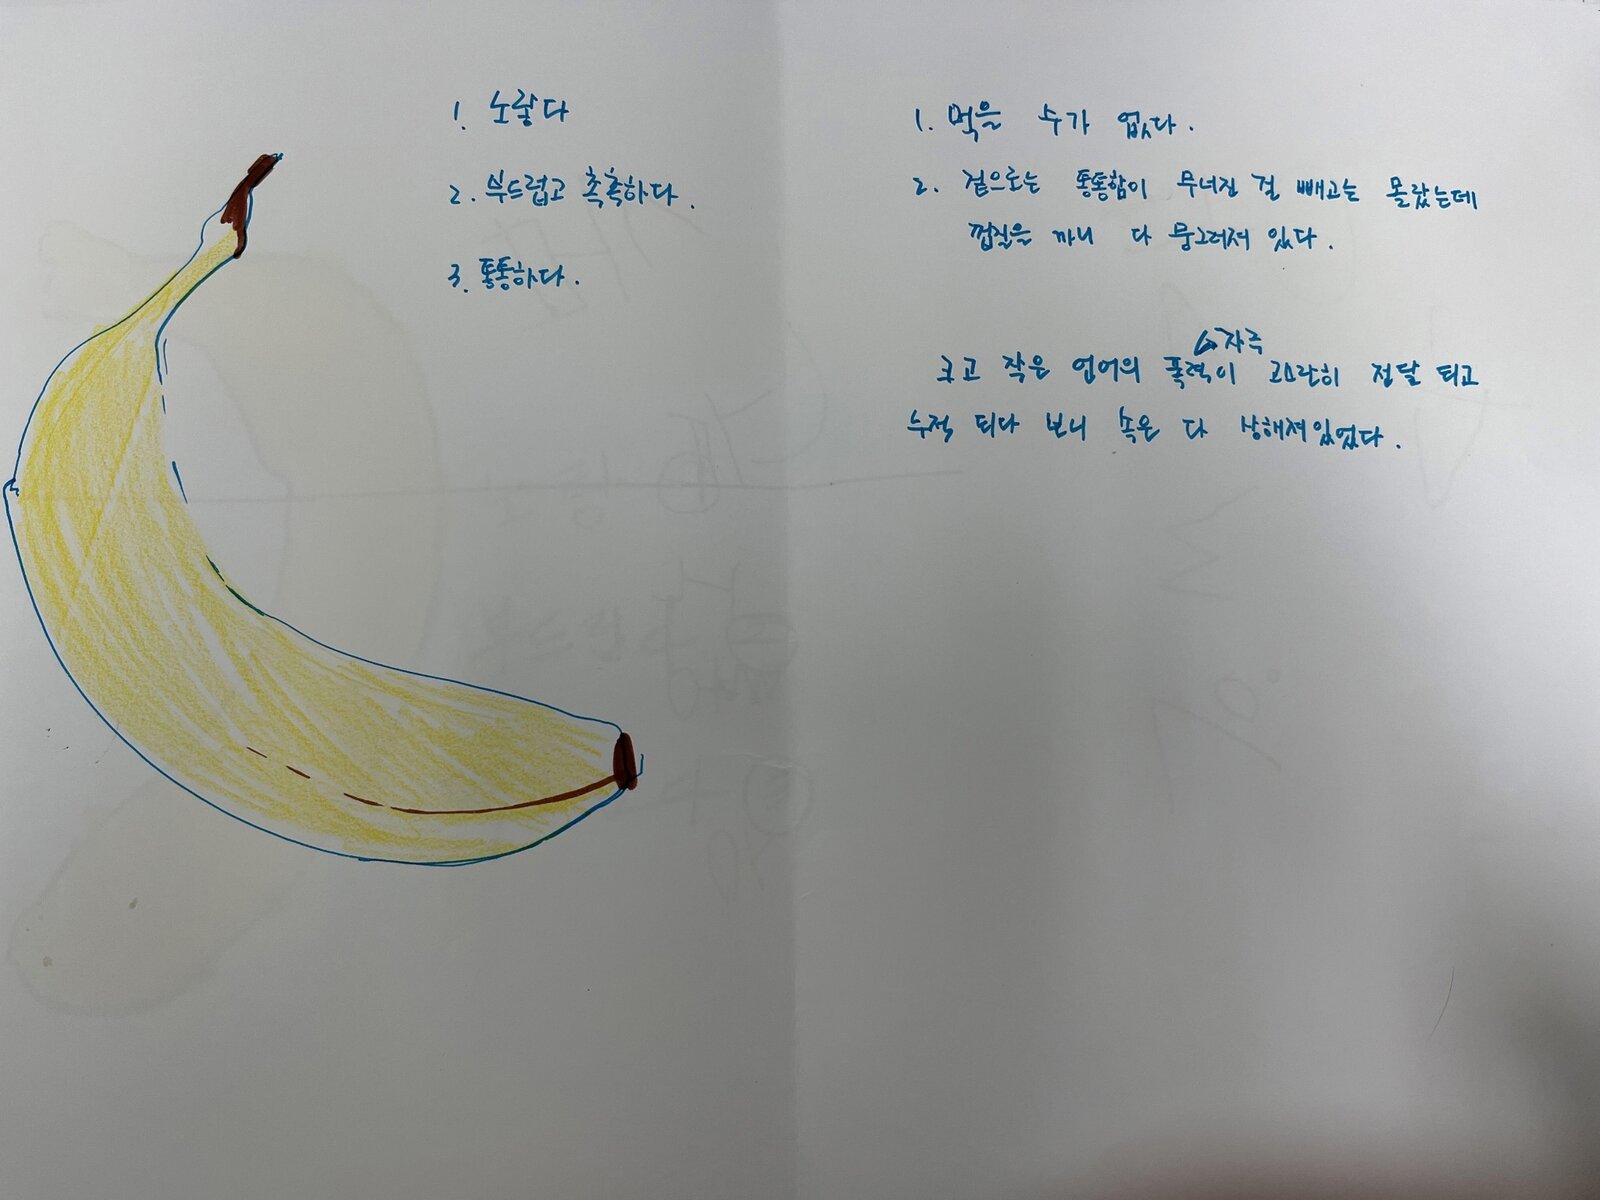 1. 노랗다
2. 부드럽고 촉촉하다.
3. 통통하다.
1. 먹을 수가 없다.
2. 겉으로는 통통함이 무너진 걸 빼고는 몰랐는데
껍질을 까니 다 뭉그러져 있다.
↳자극
크고 작은 언어의 폭력이 고스란히 전달 되고
누적 되다 보니 속은 다 상해져있었다.